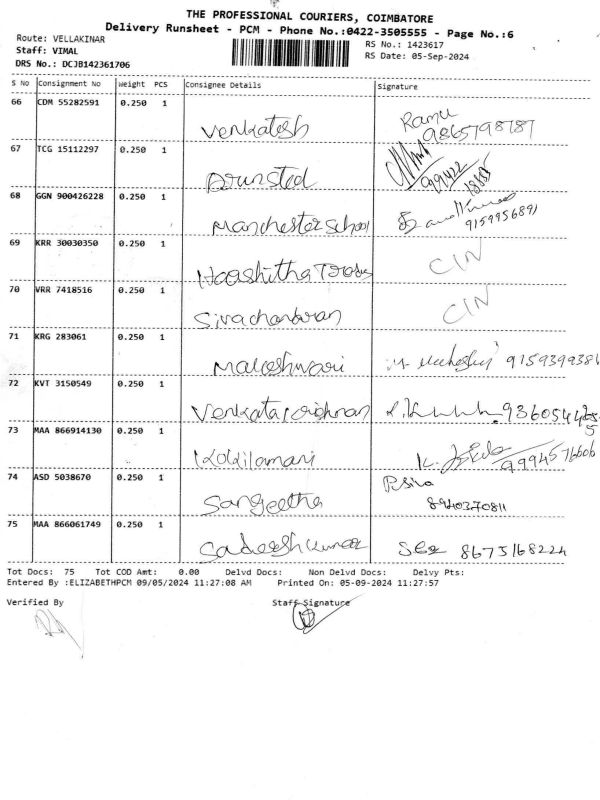 THE PROFESSIONAL COURIERS, COIMBATORE
Delivery Runsheet - PCM - Phone No.:0422-3505555 - Page No.:6
Route: VELLAKINAR
RS No.: 1423617
Staff: VIMAL
RS Date: 05-Sep-2024
DRS No.: DCJB142361706
S No Consignment No Weight PCS Consignee Details Signature
66 CDM 55282591 0.250 1 Venkatesh Ramu 9865798787
67 TCG 15112297 0.250 1
68 GGN 900426228 0.250 1 Manchester School 9159956891
69 KRR 30030350 0.250 1 CIN
70 VRR 7418516 0.250 1 CIN
71 KRG 283061 0.250 1 Maheshwari 9159399386
72 KVT 3150549 0.250 1 Venkatakrishnan
73 MAA 866914130 0.250 1 Kokilamani K.
74 ASD 5038670 0.250 1 Sangeetha P.Siva 8940370811
75 MAA 866061749 0.250 1 8675168224
Tot Docs: 75 Tot COD Amt: 0.00 Delvd Docs: Non Delvd Docs: Delvy Pts:
Entered By :ELIZABETHPCM 09/05/2024 11:27:08 AM Printed On: 05-09-2024 11:27:57
Verified By Staff Signature